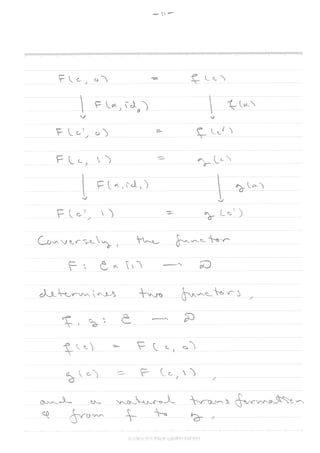 — 11 —
F(c, 0) = f(c)
↓ F(α, id₀) ↓ f(α)
F(c', 0) = f(c')
F(c, 1) = g(c)
↓ F(α, id₁) ↓ g(α)
F(c', 1) = g(c')
Conversely, the functor
F : C × [1] → D
determines two functors,
f, g : C → D
f(c) = F(c, 0)
g(c) = F(c, 1),
and a natural transformation
φ from f to g.